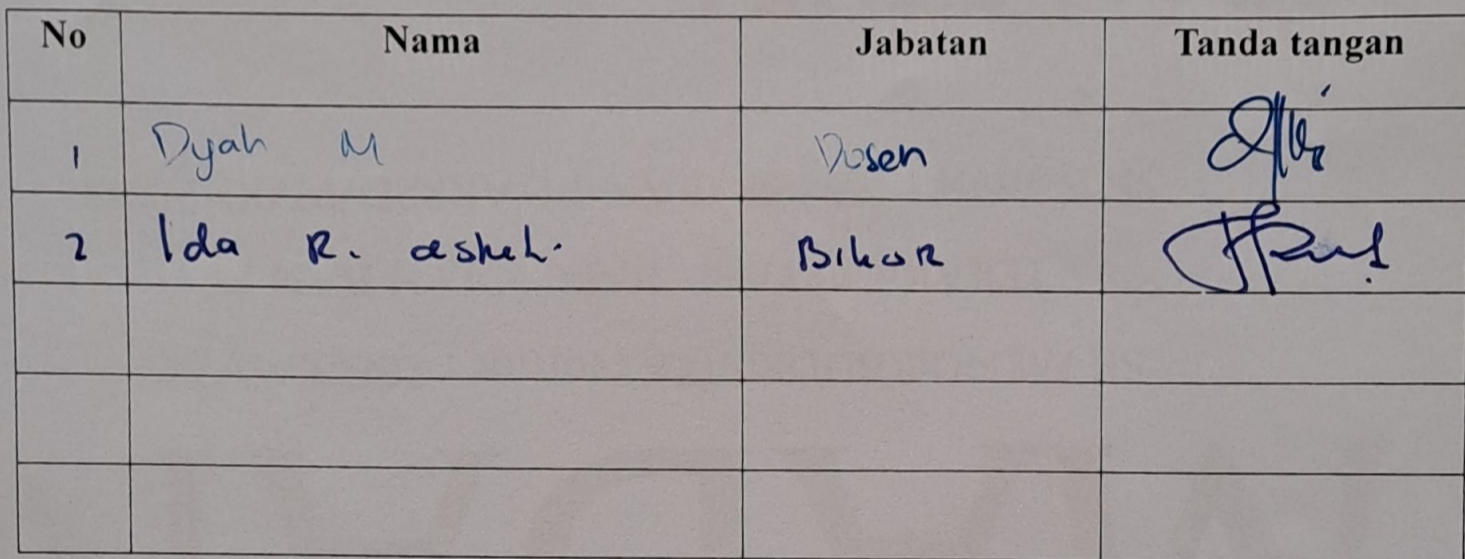 No Nama Jabatan Tanda tangan
1 Dyah M Dosen
2 Ida R. Bikor